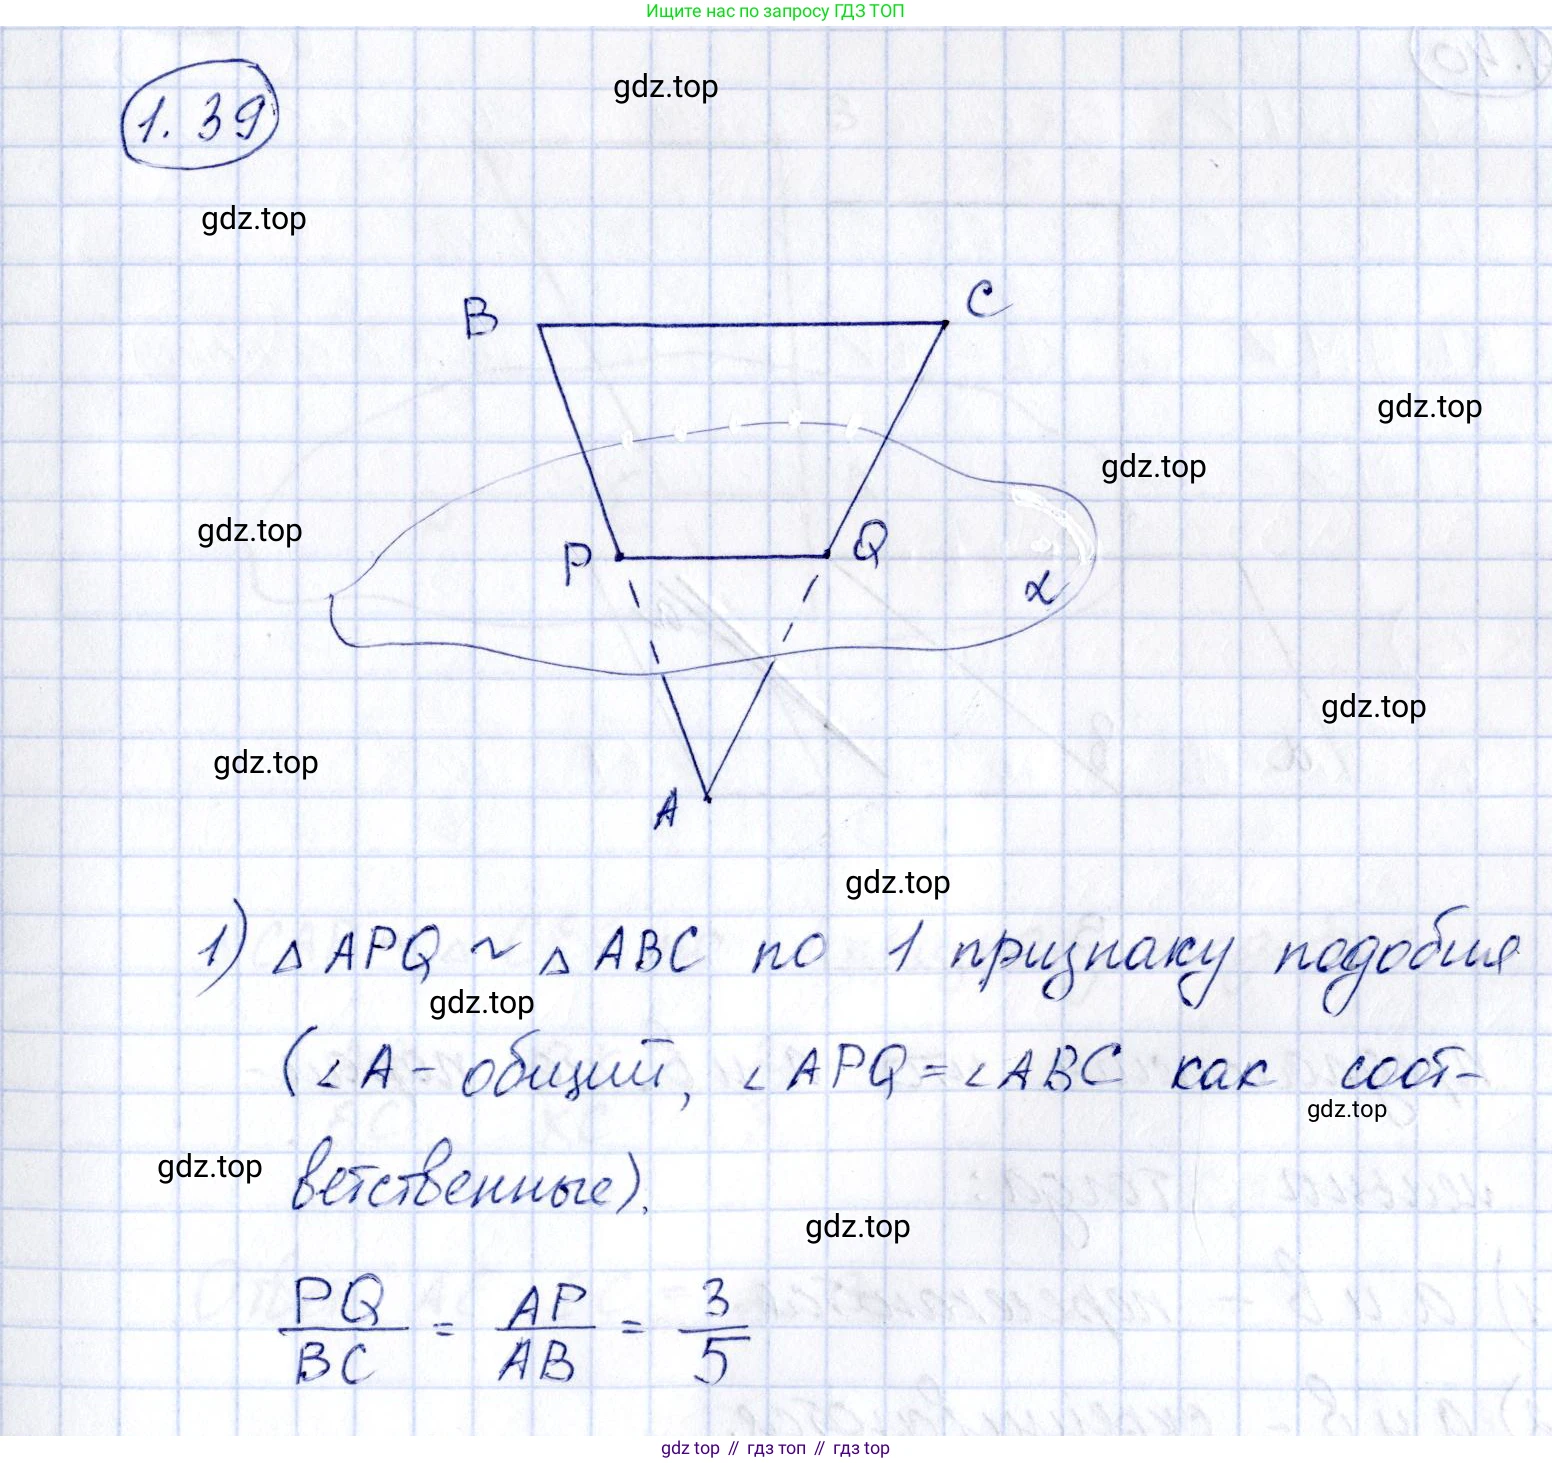 Ищите нас по запросу ГДЗ ТОП
1.39
gdz.top
gdz.top
B
C
gdz.top
gdz.top
gdz.top
P
Q
α
gdz.top
gdz.top
A
gdz.top
1) △ APQ ~ △ ABC по 1 признаку подобия
gdz.top
(∠A - общий, ∠APQ = ∠ABC как соот-
gdz.top
gdz.top
ветственные).
gdz.top
PQ/BC = AP/AB = 3/5
gdz top // гдз топ // гдз top